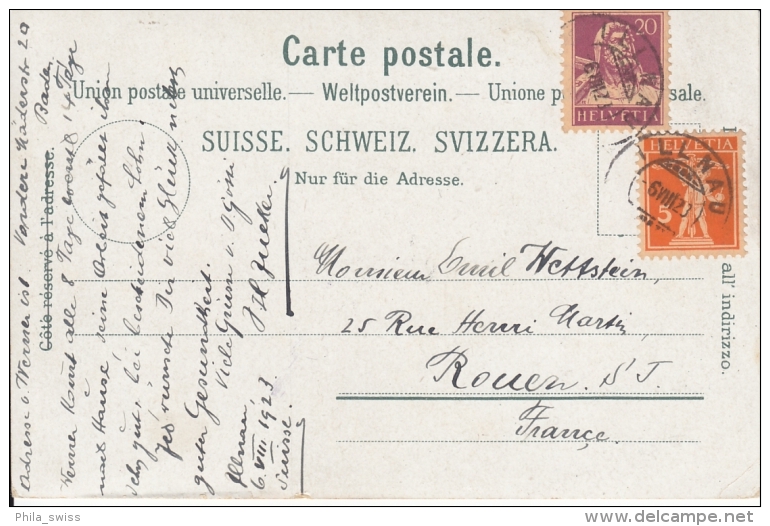 Carte postale.
Union postale universelle. — Weltpostverein. — Unione p sale.
SUISSE. SCHWEIZ. SVIZZERA.
Nur für die Adresse.
Côté réservé à l'adresse.
all' indirizzo.
20
HELVETIA
HELVETIA
5
LENAU
6 VIII 23
Monsieur Emil Wettstein,
25 Rue Henri Martin,
Rouen. S/I.
France.
Adresse v. Werner ist Vordere 20
Baden.
Werner kommt alle 8 Tage 14 Tage
nach Hause, seine Arbeit gefällt ihm
sehr gut, bei bescheidenem Lohn.
Ich wünsche Dir viel Glück nebst
guter Gesundheit.
Viele Grüsse v.
Zucker
Ellenau,
6. VIII. 1923
Suisse.
Phila_swiss
delcampe.net